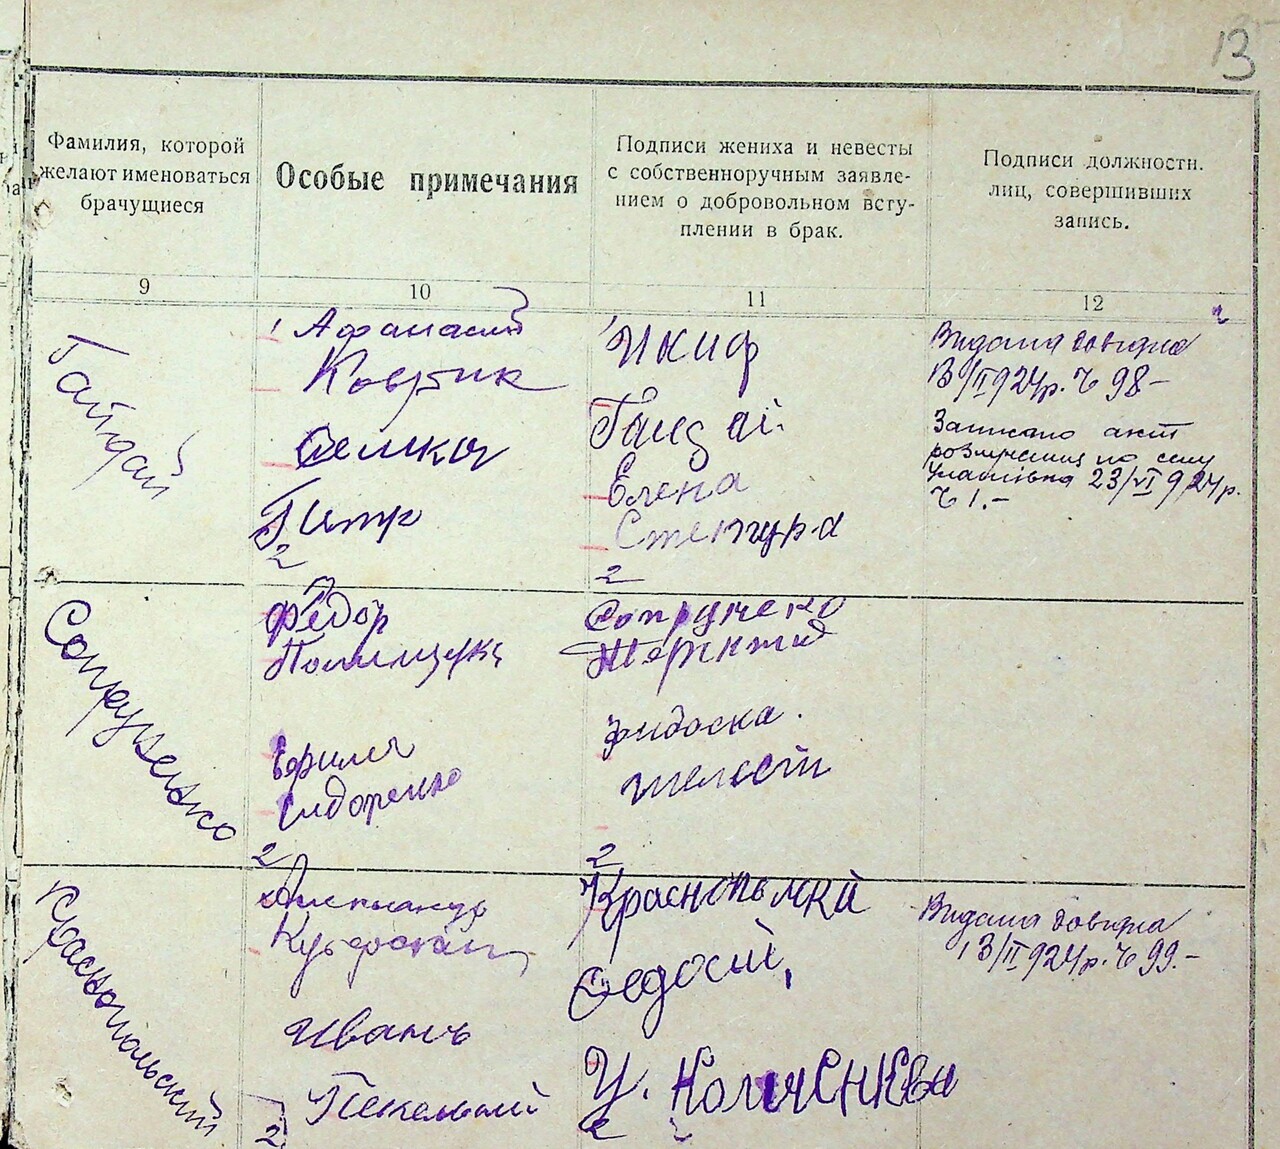 13
Фамилия, которой
желают именоваться
брачущиеся
Особые примечания
Подписи жениха и невесты
с собственноручным заявле-
нием о добровольном всту-
плении в брак.
Подписи должностн.
лиц, совершивших
запись.
9
10
11
12
Гайдай
1 Афанасий
Коврик
Семкос
Питр
2
Никиф
Гайдай
Елена
2
Видана довідка
13/II 924 р. № 98 –
Записано акт
по селу
23/VI 924 р.
№ 1. –
Сопруненко
Федор
Полищукъ
Сидоренко
2
Сопрунеко
Терентий
Федоска.
Шелест
2
Краснопольский
Олександр
Иванъ
Пекельний
2
Краснопольский
Федосий,
У. Коляснкева
2
Видана довідка
13/II 924 р. № 99. –